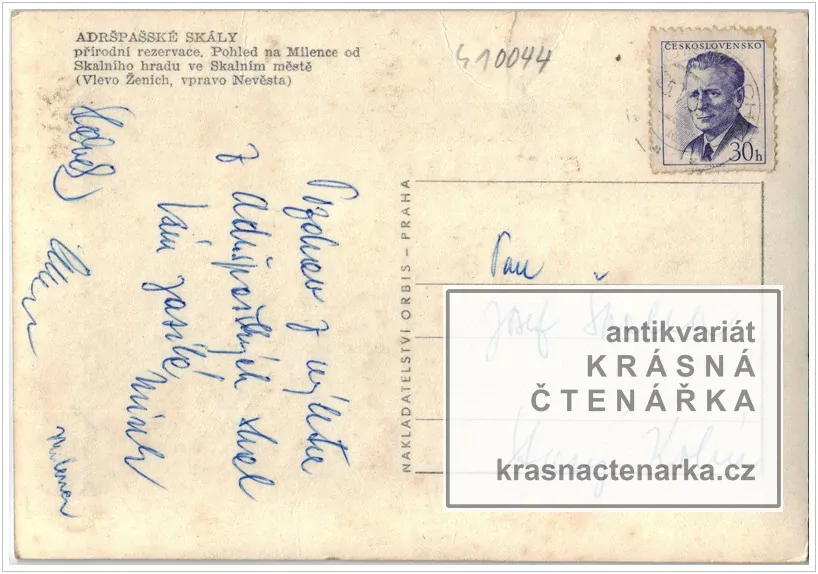 ADRŠPAŠSKÉ SKÁLY
přírodní rezervace. Pohled na Milence od
Skalního hradu ve Skalním městě
(Vlevo Ženich, vpravo Nevěsta)
410044
ČESKOSLOVENSKO
30h
Pozdrav z výletu
z Adršpašských skal
Vám zasílá
NAKLADATELSTVÍ ORBIS – PRAHA
Pan
Josef
antikvariát
KRÁSNÁ
ČTENÁŘKA
krasnactenarka.cz